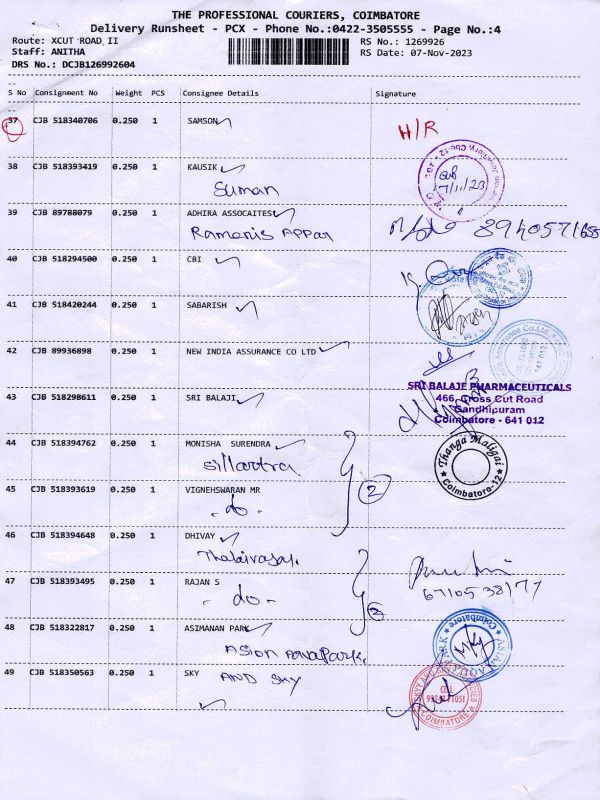 THE PROFESSIONAL COURIERS, COIMBATORE
Delivery Runsheet - PCX - Phone No.:0422-3505555 - Page No.:4
Route: XCUT ROAD II
RS No.: 1269926
Staff: ANITHA
RS Date: 07-Nov-2023
DRS No.: DCJB126992604
S No Consignment No Weight PCS Consignee Details Signature
37 CJB 518340706 0.250 1 SAMSON H/R
38 CJB 518393419 0.250 1 KAUSIK
Suman
39 CJB 89788079 0.250 1 ADHIRA ASSOCAITES
40 CJB 518294500 0.250 1 CBI
41 CJB 518420244 0.250 1 SABARISH
42 CJB 89936898 0.250 1 NEW INDIA ASSURANCE CO LTD
43 CJB 518298611 0.250 1 SRI BALAJI
SRI BALAJE PHARMACEUTICALS
466, Cross Cut Road
Gandhipuram
Coimbatore - 641 012
44 CJB 518394762 0.250 1 MONISHA SURENDRA
Thanga Maligai
Coimbatore-12
45 CJB 518393619 0.250 1 VIGNEHSWARAN MR
- do -
2
46 CJB 518394648 0.250 1 DHIVAY
47 CJB 518393495 0.250 1 RAJAN S
- do -
2
48 CJB 518322817 0.250 1 ASIMANAN PARK
Coimbatore
49 CJB 518350563 0.250 1 SKY
AND SKY
CELL
COIMBATORE